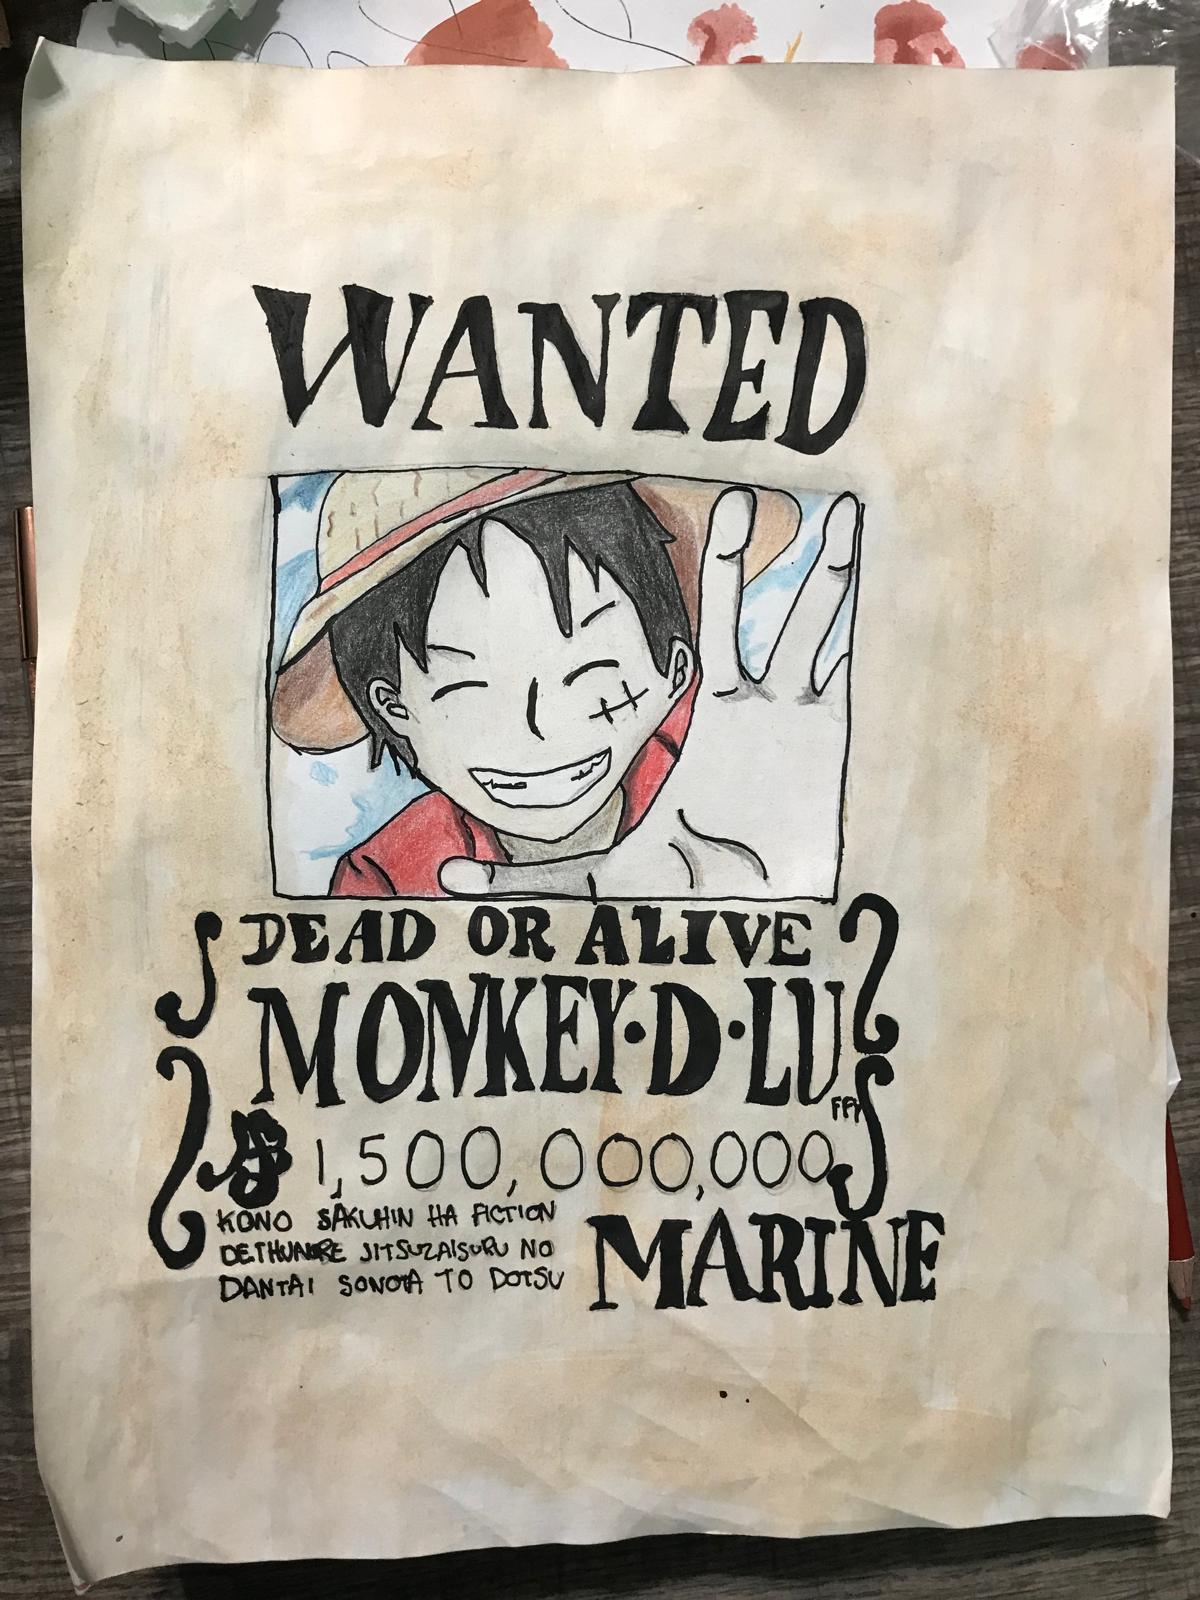 WANTED
DEAD OR ALIVE
MONKEY·D·LUFFY
1,500,000,000
KONO SAKUHIN HA FICTION
DETHUNORE JITSUZAISURU NO
DANTAI SONOTA TO DOTSU
MARINE